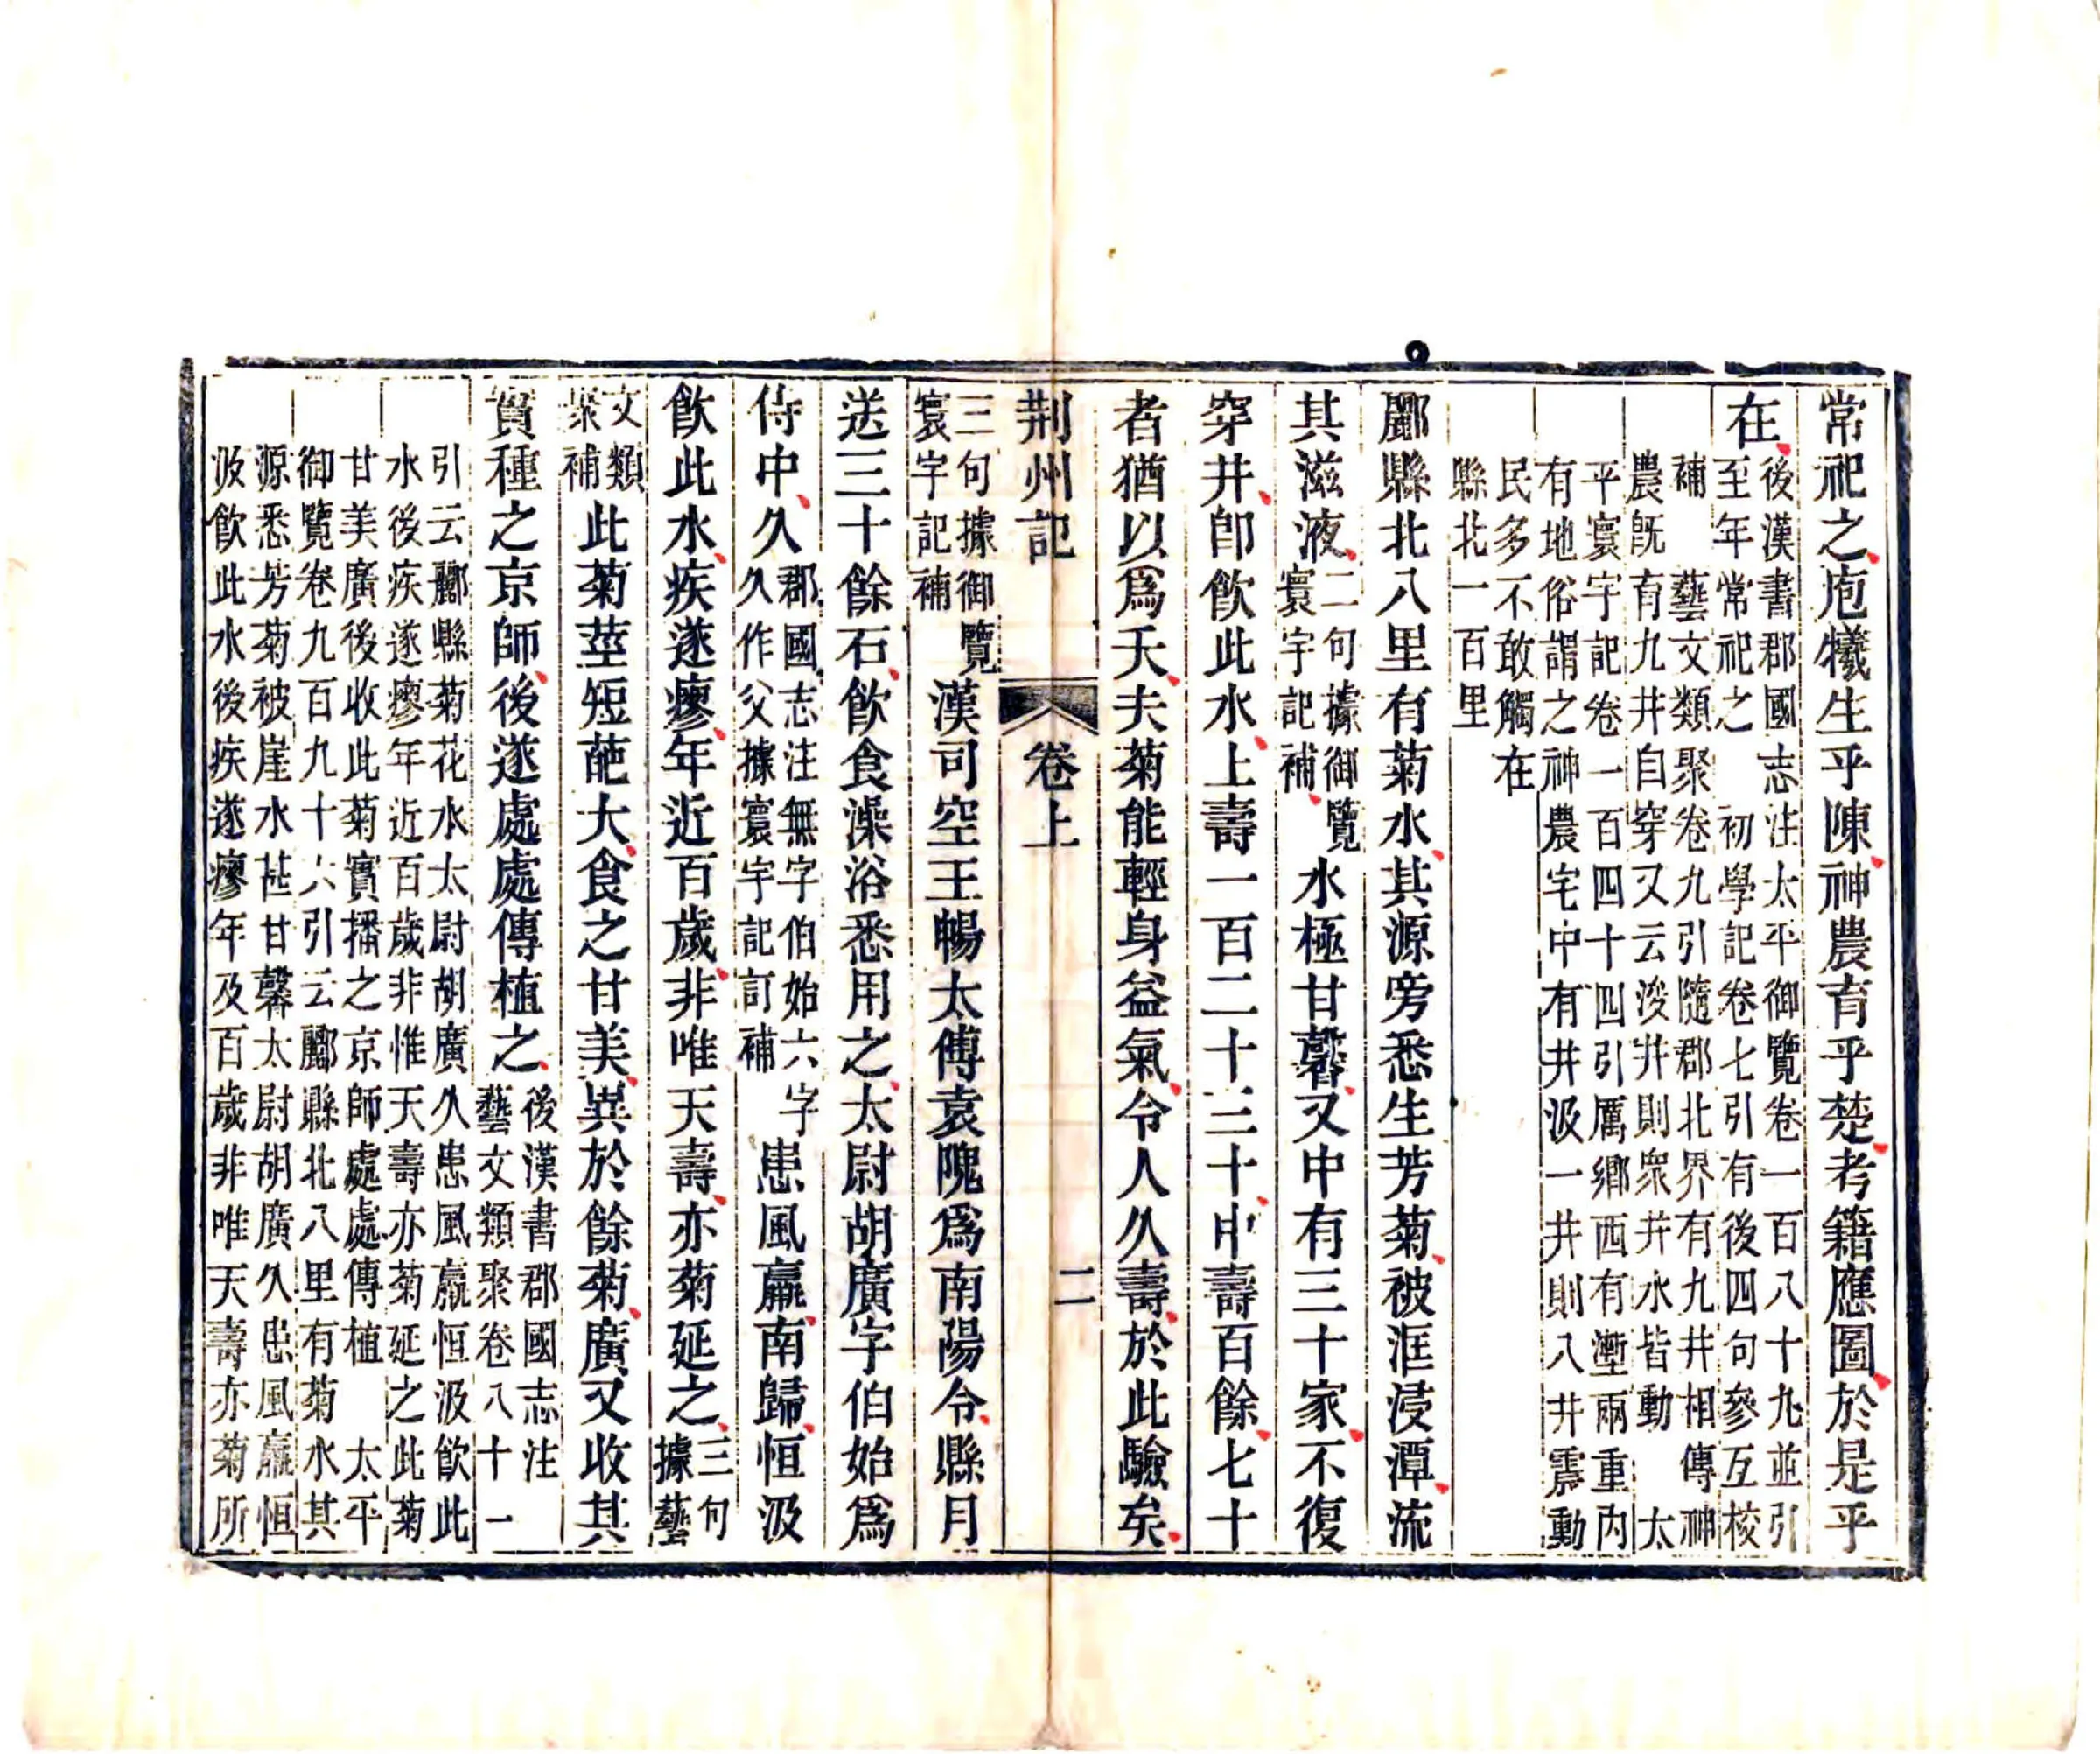 常祀之庖犧生乎陳神農育乎楚考籍應圖於是乎
在
後漢書郡國志注太平御覽卷一百八十九並引
至年常祀之 初學記卷七引有後四句參互校
補 藝文類聚卷九引隨郡北界有九井相傳神
農旣育九井自穿又云浚井則衆井水皆動 太
平寰宇記卷一百四十四引厲鄉西有壍兩重內
有地俗謂之神農宅中有井汲一井則八井震動
民多不敢觸在
縣北一百里
酈縣北八里有菊水其源旁悉生芳菊被涯浸潭流
其滋液
二句據御覽
寰宇記補
水極甘馨又中有三十家不復
穿井卽飮此水上壽一百二十三十中壽百餘七十
者猶以爲夭夫菊能輕身益氣令人久壽於此驗矣
荆州記 卷上 二
三句據御覽
寰宇記補
漢司空王暢太傅袁隗爲南陽令縣月
送三十餘石飮食澡浴悉用之太尉胡廣字伯始爲
侍中久
郡國志注無字伯始六字
久作父據寰宇記訂補
患風羸南歸恒汲
飮此水疾遂瘳年近百歲非唯天壽亦菊延之
三句據藝
文類聚補
此菊莖短葩大食之甘美異於餘菊廣又收其
實種之京師後遂處處傳植之
後漢書郡國志注
藝文類聚卷八十一
引云酈縣菊花水太尉胡廣久患風羸恒汲飮此
水後疾遂瘳年近百歲非惟天壽亦菊延之此菊
甘美廣後收此菊實播之京師處處傳植 太平
御覽卷九百九十六引云酈縣北八里有菊水其
源悉芳菊被崖水甚甘馨太尉胡廣久患風羸恒
汲飮此水後疾遂瘳年及百歲非唯天壽亦菊所